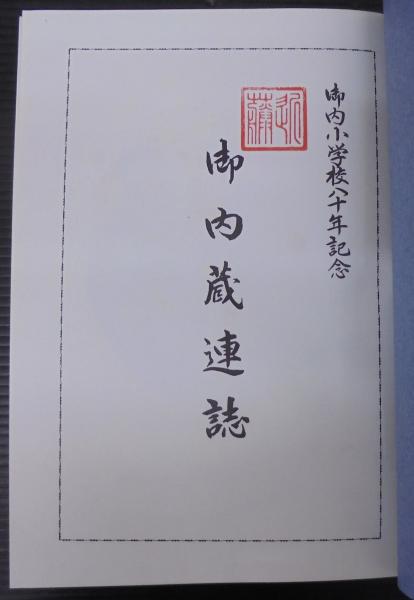 御内小学校八十年記念
御内蔵連誌
近藤